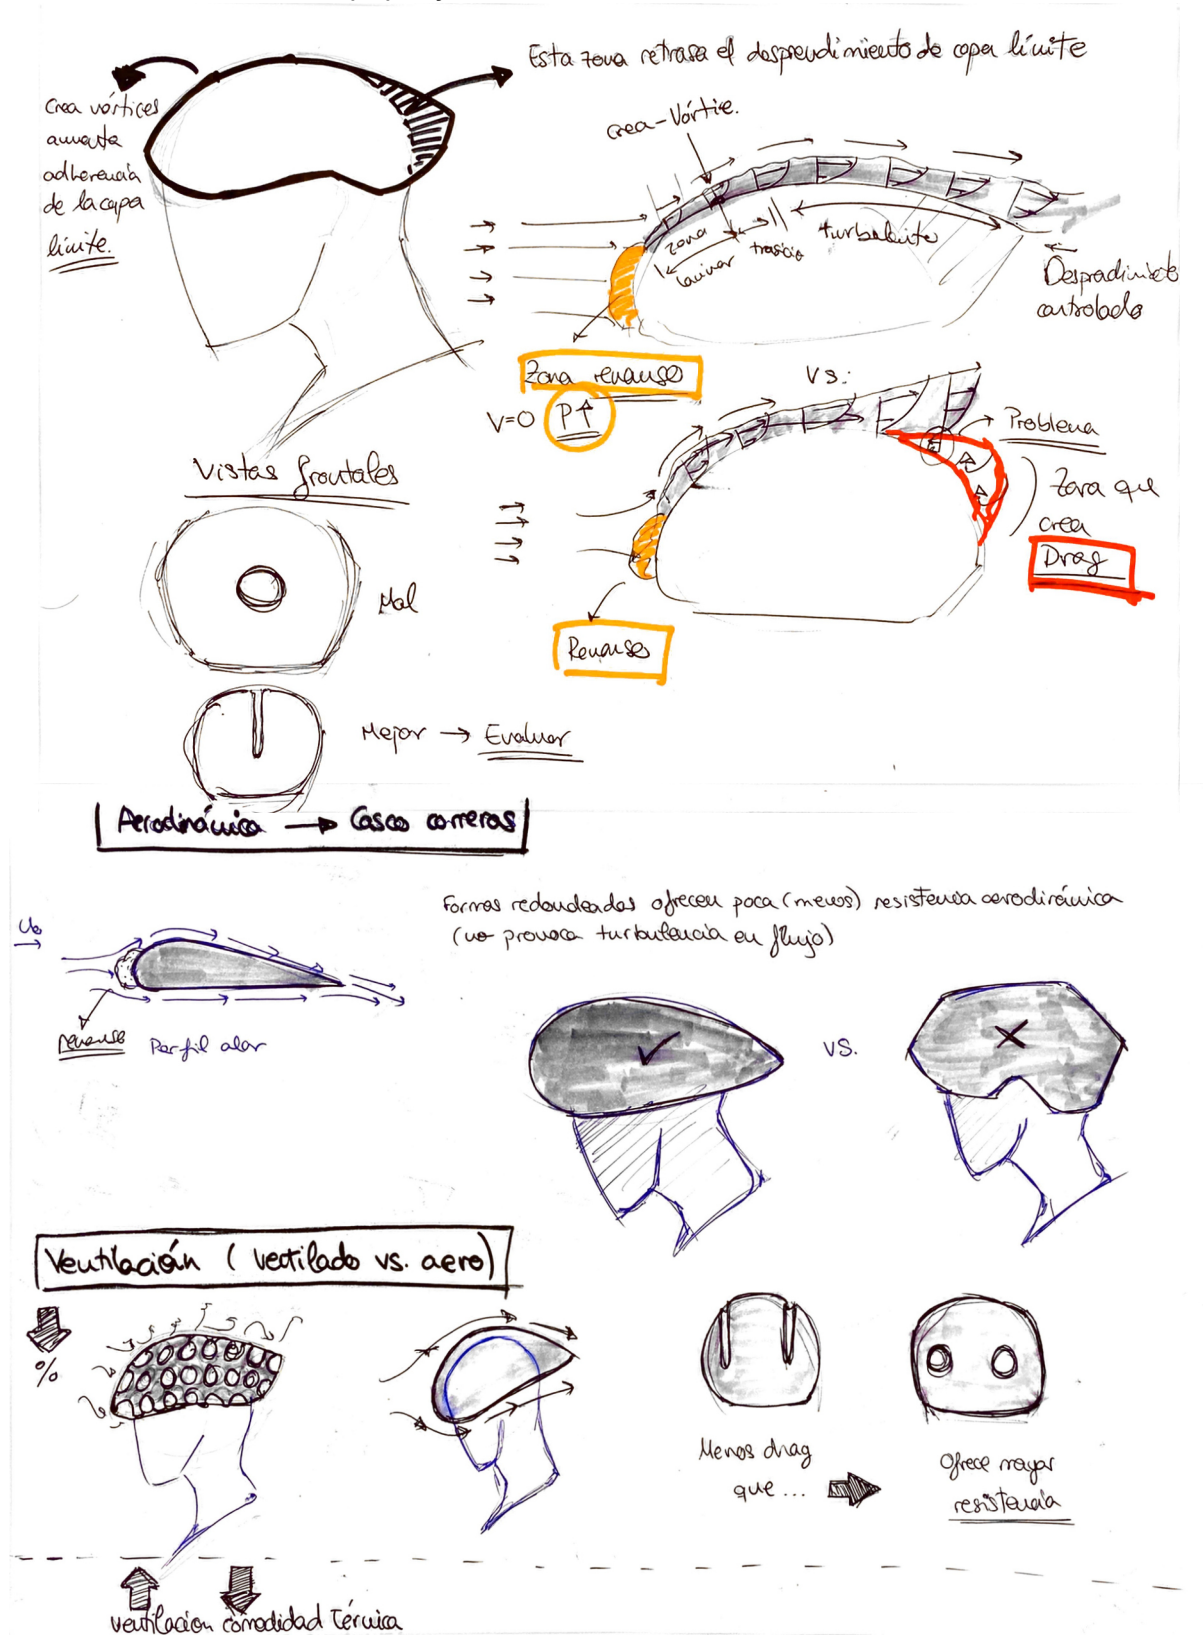 Esta zona retrasa el desprendimiento de capa límite
Crea vórtices
aumenta
adherencia
de la capa
límite.
crea-Vórtice.
zona
laminar
trasicio
turbulento
Despredimiento
controlado
Zona remanso
V=0 P↑
Vs:
Problema
Zona que
crea
Drag
Remanso
Vistas frontales
Mal
Mejor → Evaluar
Aerodinámica → Casco carreras
Formas redondeadas ofrecen poca (menos) resistencia aerodinámica
(no provoca turbulencia en flujo)
U₀
remanso
Perfil alar
vs.
Ventilación (ventilado vs. aero)
%
Menos drag
que ...
Ofrece mayor
resistencia
ventilación comodidad Térmica